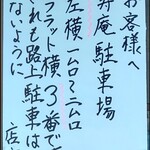 お客様へ
寿庵駐車場
左横一ムロミニムロ
フラット横3番で
それも路上駐車は
ないように
店